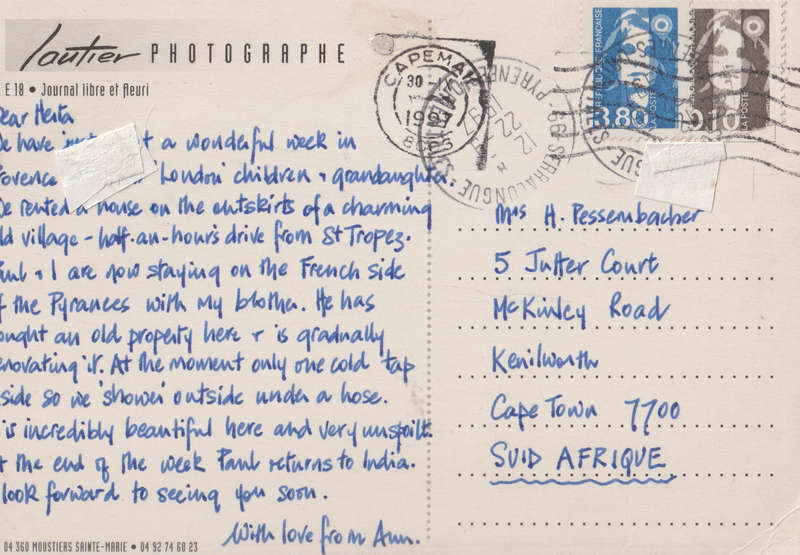 Lautier PHOTOGRAPHE
E 18 • Journal libre et fleuri
Dear Herta
We have just a wonderful week in
Provence 'London' children + grandaughter.
We rented a house on the outskirts of a charming
old village - half-an-hour's drive from St Tropez.
Paul + I are now staying on the French side
of the Pyranees with my brother. He has
bought an old property here + is gradually
renovating it. At the moment only one cold tap
side so we 'shower' outside under a hose.
is incredibly beautiful here and very unspoilt.
At the end of the week Paul returns to India.
look forward to seeing you soon.
With love from Ann.
04 360 MOUSTIERS SAINTE-MARIE • 04 92 74 68 23
CAPEMAIL
30
19
66 SERRALONGUE
PYRENEES
12
22
REPUBLIQUE FRANÇAISE
3,80
LA POSTE
0,10
LA POSTE
Mrs H. Pessenbacher
5 Jutter Court
McKinley Road
Kenilworth
Cape Town 7700
SUID AFRIQUE